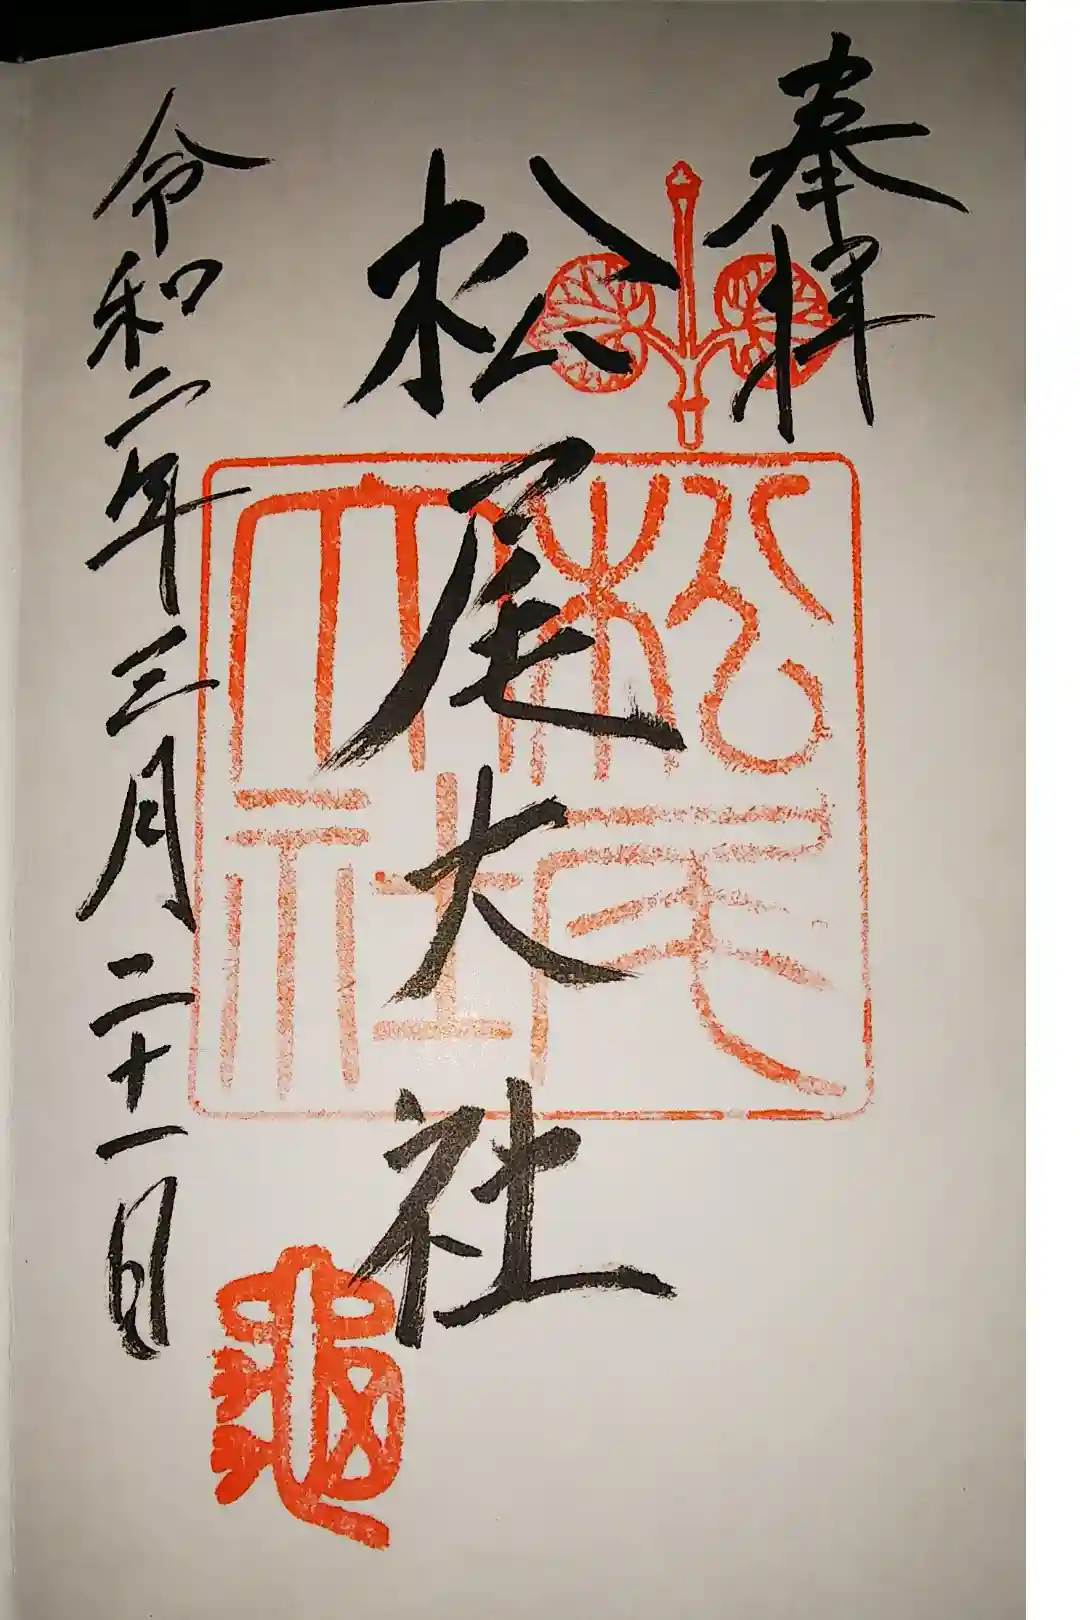 奉拝
松尾大社
松尾大社
令和二年三月二十一日
亀